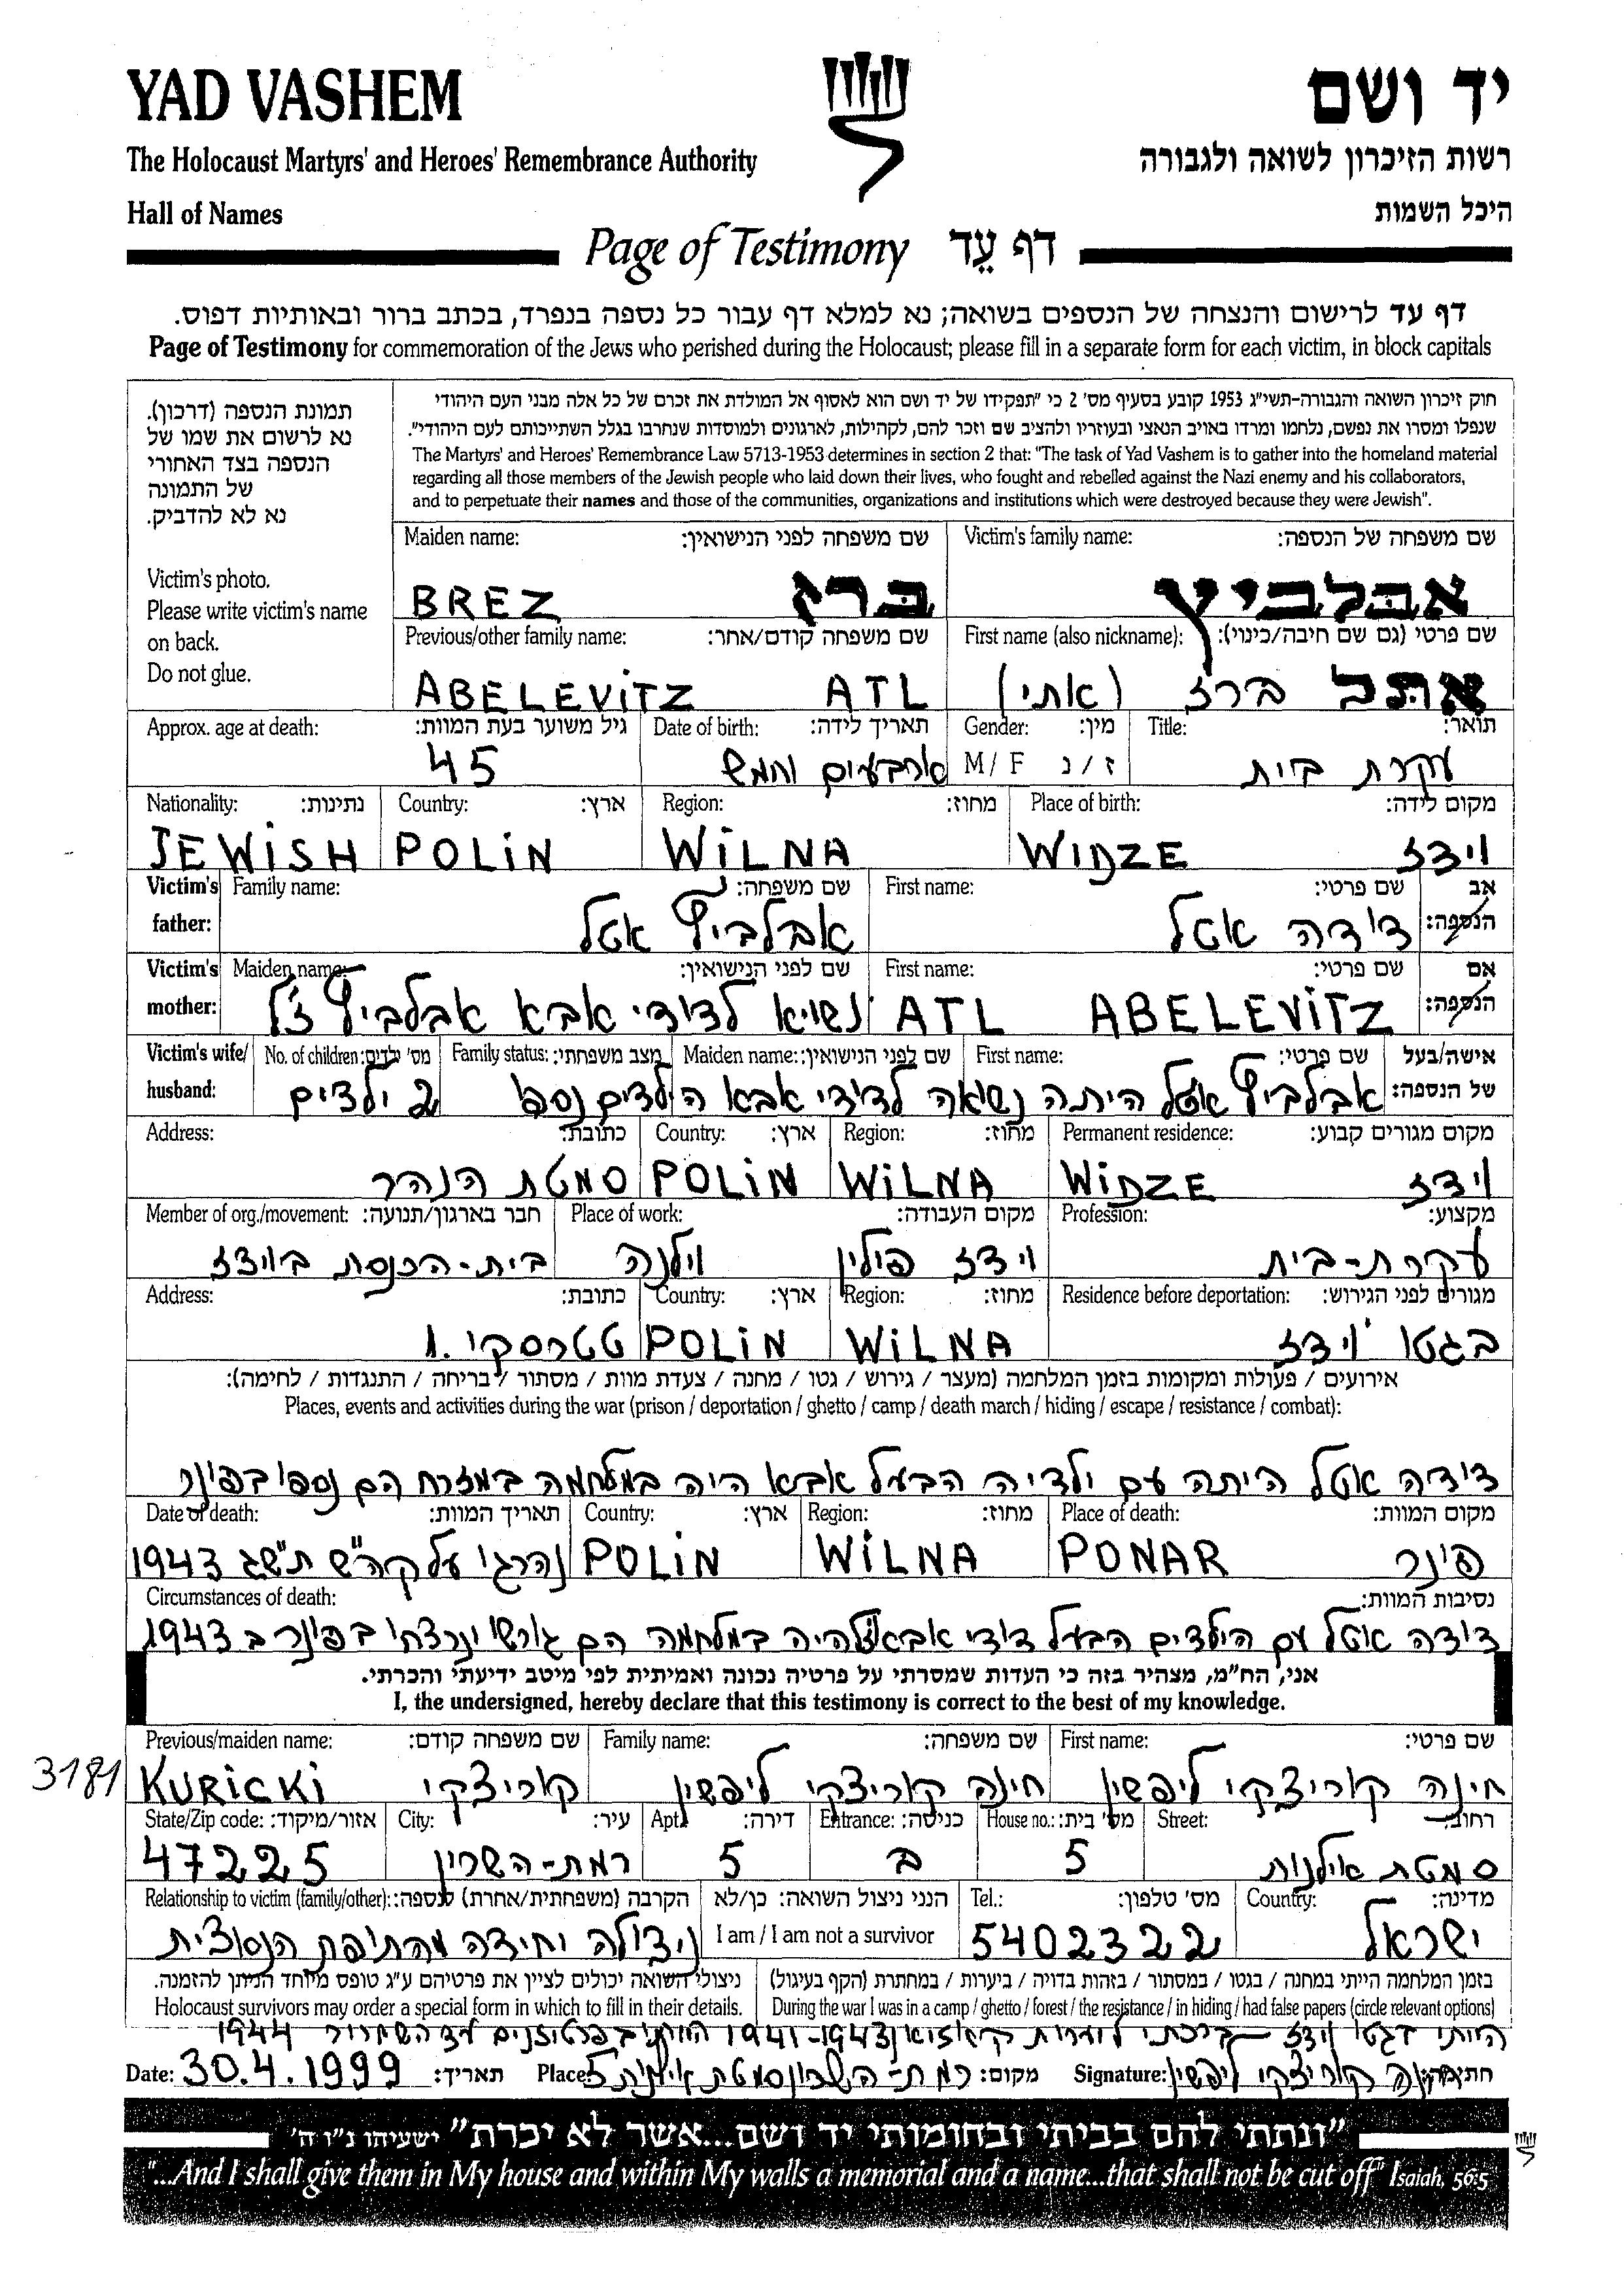 YAD VASHEM יד ושם
The Holocaust Martyrs' and Heroes' Remembrance Authority רשות הזיכרון לשואה ולגבורה
Hall of Names היכל השמות
Page of Testimony דף עֵד
דף עד לרישום והנצחה של הנספים בשואה; נא למלא דף עבור כל נספה בנפרד, בכתב ברור ובאותיות דפוס.
Page of Testimony for commemoration of the Jews who perished during the Holocaust; please fill in a separate form for each victim, in block capitals
תמונת הנספה (דרכון).
נא לרשום את שמו של
הנספה בצד האחורי
של התמונה
נא לא להדביק.
Victim's photo.
Please write victim's name
on back.
Do not glue.
חוק זיכרון השואה והגבורה-תשי"ג 1953 קובע בסעיף מס' 2 כי "תפקידו של יד ושם הוא לאסוף אל המולדת את זכרם של כל אלה מבני העם היהודי
שנפלו ומסרו את נפשם, נלחמו ומרדו באויב הנאצי ובעוזריו ולהציב שם וזכר להם, לקהילות, לארגונים ולמוסדות שנחרבו בגלל השתייכותם לעם היהודי".
The Martyrs' and Heroes' Remembrance Law 5713-1953 determines in section 2 that: "The task of Yad Vashem is to gather into the homeland material
regarding all those members of the Jewish people who laid down their lives, who fought and rebelled against the Nazi enemy and his collaborators,
and to perpetuate their names and those of the communities, organizations and institutions which were destroyed because they were Jewish".
Maiden name: שם משפחה לפני הנישואין: Victim's family name: שם משפחה של הנספה:
BREZ ברז אבלביץ
Previous/other family name: שם משפחה קודם/אחר: First name (also nickname): שם פרטי (גם שם חיבה/כינוי):
ABELEVITZ ATL אתל ברז (אתי)
Approx. age at death: גיל משוער בעת המוות: Date of birth: תאריך לידה: Gender: מין: Title: תואר:
45 ארבעים וחמש M / F ז / נ עקרת בית
Nationality: נתינות: Country: ארץ: Region: מחוז: Place of birth: מקום לידה:
JEWISH POLIN WILNA WIDZE וידז
Victim's father: Family name: שם משפחה: First name: שם פרטי: אב הנספה:
אבלביץ אטל דודה אטל
Victim's mother: Maiden name: שם לפני הנישואין: First name: שם פרטי: אם הנספה:
נשויא לדודי אבא אבלביץ ז"ל ATL ABELEVITZ
Victim's wife/ husband: No. of children: מס' ילדים: Family status: מצב משפחתי: Maiden name: שם לפני הנישואין: First name: שם פרטי: אישה/בעל של הנספה:
אבלביץ אטל היתה נשאה לדודי אבא הילדים נספו 2 ילדים
Address: כתובת: Country: ארץ: Region: מחוז: Permanent residence: מקום מגורים קבוע:
סמטת הנהר POLIN WILNA WIDZE וידז
Member of org./movement: חבר בארגון/תנועה: Place of work: מקום העבודה: Profession: מקצוע:
בית-הכנסת בוידז וידז פולין וילנה עקרת-בית
Address: כתובת: Country: ארץ: Region: מחוז: Residence before deportation: מגורים לפני הגירוש:
טטרסקי 1. POLIN WILNA בגטו וידז
אירועים / פעולות ומקומות בזמן המלחמה (מעצר / גירוש / גטו / מחנה / צעדת מוות / מסתור / בריחה / התנגדות / לחימה):
Places, events and activities during the war (prison / deportation / ghetto / camp / death march / hiding / escape / resistance / combat):
דודה אטל היתה עם ילדיה הבעל אבא היה במלחמה במזרח הם נספו בפונר
Date of death: תאריך המוות: Country: ארץ: Region: מחוז: Place of death: מקום המוות:
נהרגו על קה"ש ת"שג 1943 POLIN WILNA PONAR פונר
Circumstances of death: נסיבות המוות:
דודה אטל עם הילדים הבעל דודי אבא היה במלחמה הם גורשו ונרצחו בפונר ב 1943
אני, הח"מ, מצהיר בזה כי העדות שמסרתי על פרטיה נכונה ואמיתית לפי מיטב ידיעתי והכרתי.
I, the undersigned, hereby declare that this testimony is correct to the best of my knowledge.
Previous/maiden name: שם משפחה קודם: Family name: שם משפחה: First name: שם פרטי:
3181 KURICKI קוריצקי חינה קוריצקי ליפשין חינה קוריצקי ליפשין
State/Zip code: אזור/מיקוד: City: עיר: Apt. דירה: Entrance: כניסה: House no.: מס' בית: Street: רחוב:
47225 רמת-השרון 5 ב 5 סמטת אילנות
Relationship to victim (family/other): הקרבה (משפחתית/אחרת) לנספה: הנני ניצול השואה: כן/לא Tel.: מס' טלפון: Country: מדינה:
ניצולה יחידה מהתופת הנוצית I am / I am not a survivor 5402322 ישראל
ניצולי השואה יכולים לציין את פרטיהם ע"ג טופס מיוחד הניתן להזמנה. בזמן המלחמה הייתי במחנה / בגטו / במסתור / בזהות בדויה / ביערות / במחתרת (הקף בעיגול)
Holocaust survivors may order a special form in which to fill in their details. During the war I was in a camp / ghetto / forest / the resistance / in hiding / had false papers (circle relevant options)
הייתי בגטו וידז 1941-1943 בפרטיזנים עד השחרור 1944
Date: 30.4.1999 תאריך: Place: רמת-השרון סמטת אילנות 5 מקום: Signature: חינה קוריצקי ליפשין חתימה:
"ונתתי להם בביתי ובחומותי יד ושם...אשר לא יכרת" ישעיהו נ"ו ה'
"...And I shall give them in My house and within My walls a memorial and a name...that shall not be cut off" Isaiah, 56:5